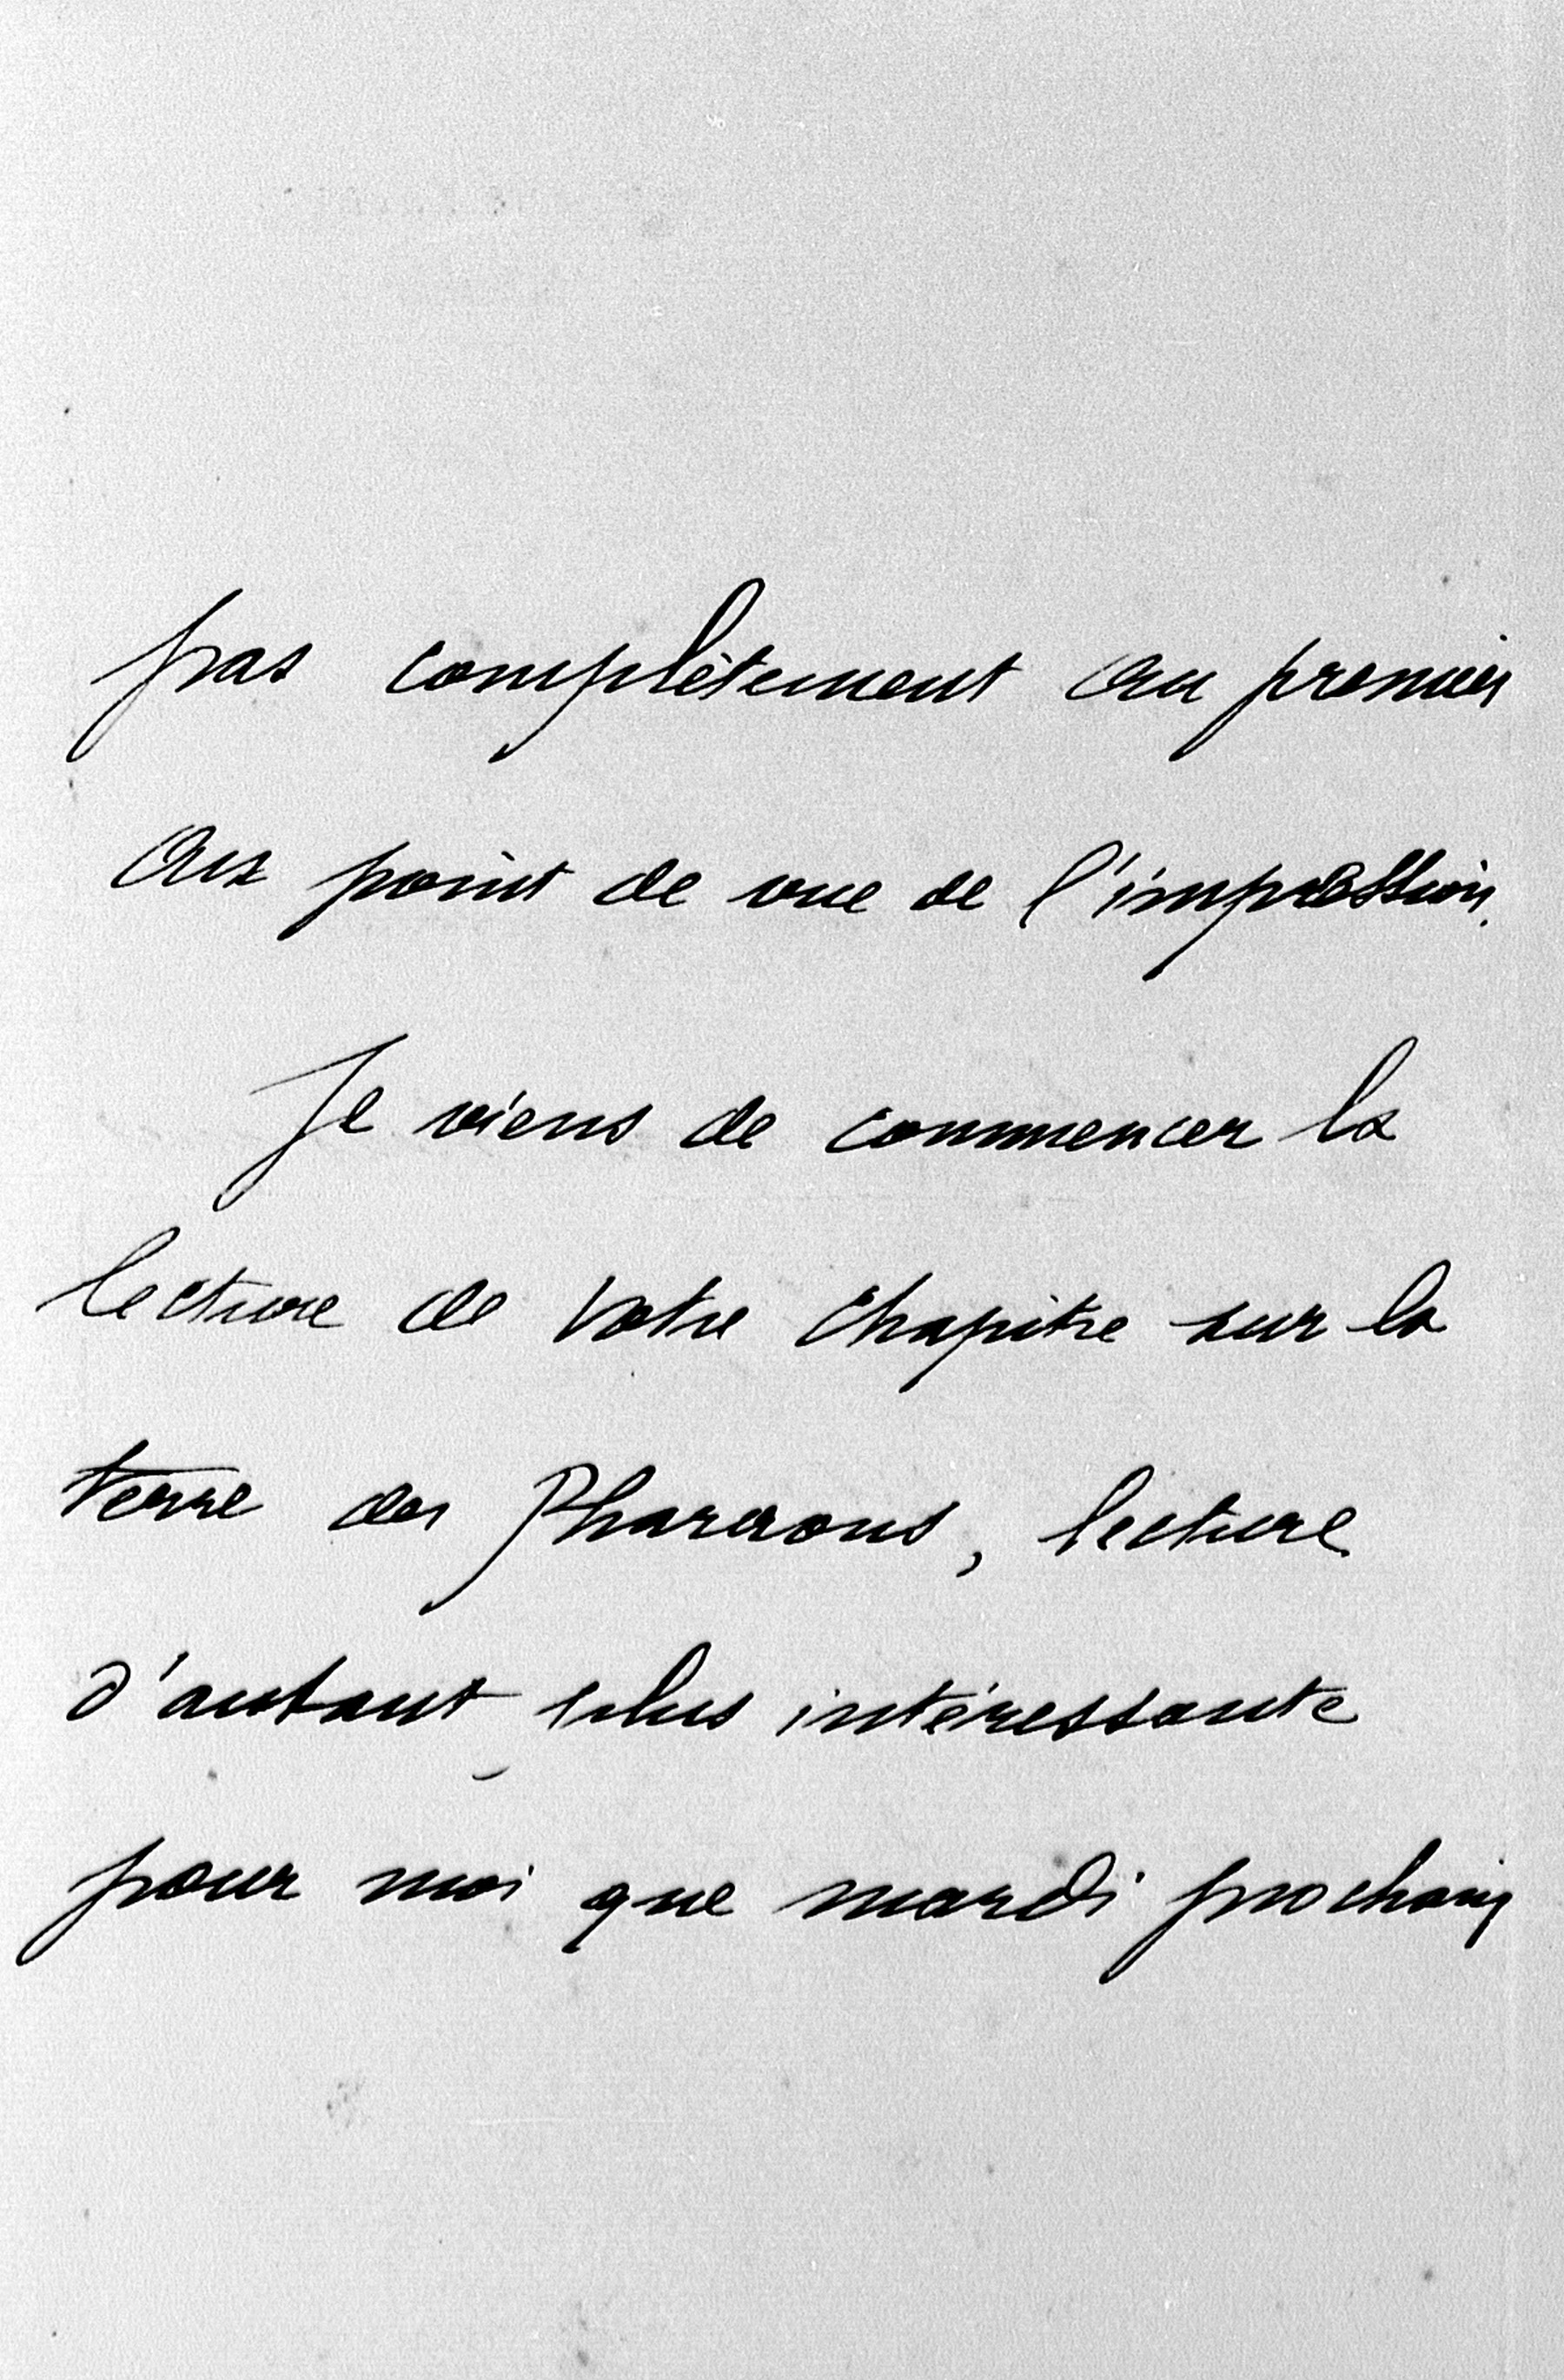 pas complètement au premier
Aux point de vue de l'impression.
Je viens de commencer la
lecture de votre chapitre sur la
terre des Pharaons, lecture
d'autant plus intéressante
pour moi que mardi prochain